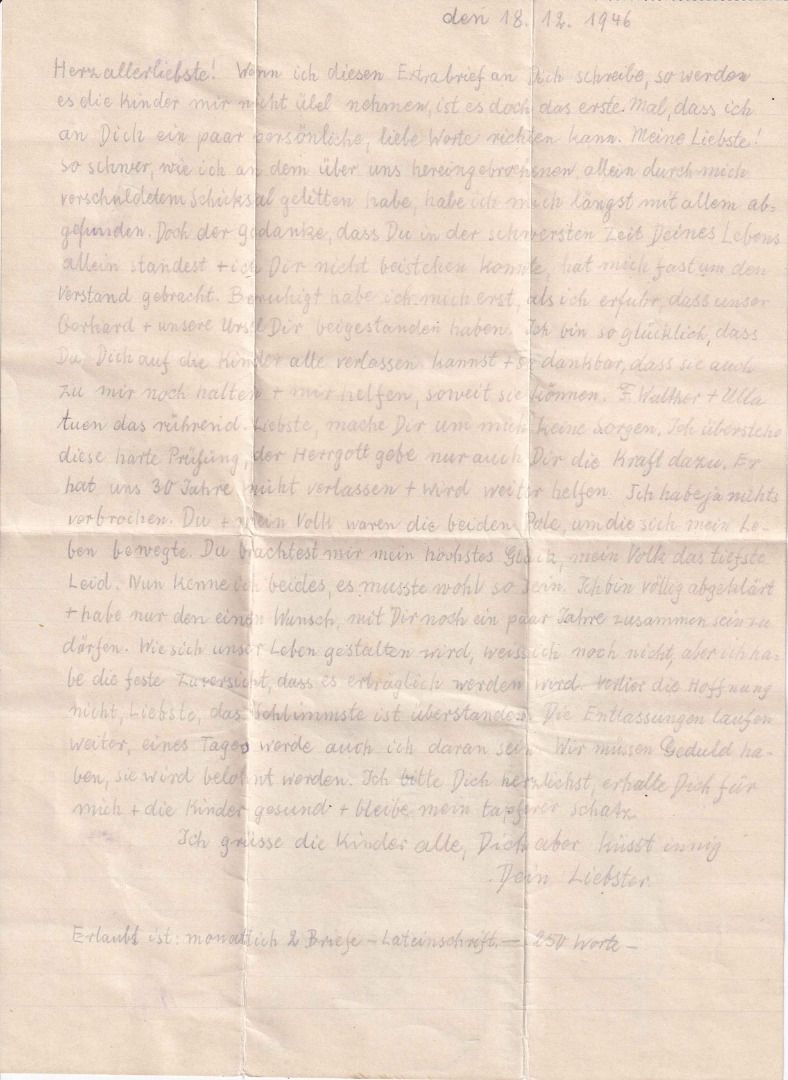 den 18. 12. 1946
Herzallerliebste! Wenn ich diesen Extrabrief an Dich schreibe, so werden
es die Kinder mir nicht übel nehmen, ist es doch das erste Mal, dass ich
an Dich ein paar persönliche, liebe Worte richten kann. Meine Liebste!
So schwer, wie ich an dem über uns hereingebrochenen, allein durch mich
verschuldetem Schicksal gelitten habe, habe ich mich längst mit allem ab-
gefunden. Doch der Gedanke, dass Du in der schwersten Zeit Deines Lebens
allein standest + ich Dir nicht beistehen konnte, hat mich fast um den
Verstand gebracht. Beruhigt habe ich mich erst, als ich erfuhr, dass unser
Gerhard + unsere Ursel Dir beigestanden haben. Ich bin so glücklich, dass
Du Dich auf die Kinder alle verlassen kannst + so dankbar, dass sie auch
zu mir noch halten + mir helfen, soweit sie können. F. Walther + Ulla
tuen das rührend. Liebste, mache Dir um mich keine Sorgen. Ich überstehe
diese harte Prüfung, der Herrgott gebe nur auch Dir die Kraft dazu. Er
hat uns 30 Jahre nicht verlassen + wird weiter helfen. Ich habe ja nichts
verbrochen. Du + mein Volk waren die beiden Pole, um die sich mein Le-
ben bewegte. Du brachtest mir mein höchstes Glück, mein Volk das tiefste
Leid. Nun kenne ich beides, es musste wohl so sein. Ich bin völlig abgeklärt
+ habe nur den einen Wunsch, mit Dir noch ein paar Jahre zusammen sein zu
dürfen. Wie sich unser Leben gestalten wird, weiss ich noch nicht, aber ich ha-
be die feste Zuversicht, dass es erträglich werden wird. Verlier die Hoffnung
nicht, Liebste, das Schlimmste ist überstanden. Die Entlassungen laufen
weiter, eines Tages werde auch ich daran sein. Wir müssen Geduld ha-
ben, sie wird belohnt werden. Ich bitte Dich herzlichst, erhalte Dich für
mich + die Kinder gesund + bleibe mein tapferer Schatz.
Ich grüsse die Kinder alle, Dich aber küsst innig
Dein Liebster.
Erlaubt ist: monatlich 2 Briefe – Lateinschrift – 250 Worte –